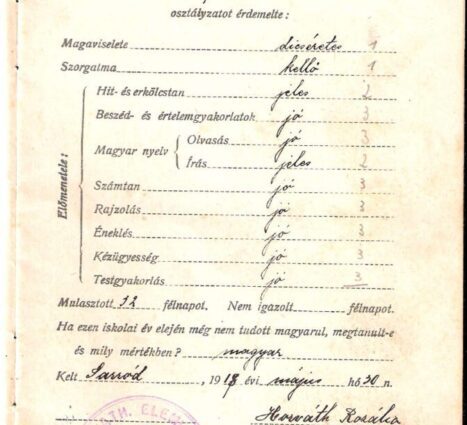 osztályzatot érdemelte:
Magaviselete dicséretes 1
Szorgalma kellő 1
Előmenetele:
Hit- és erkölcstan jeles 2
Beszéd- és értelemgyakorlatok jó 3
Magyar nyelv
Olvasás jó 3
Írás jeles 2
Számtan jó 3
Rajzolás jó 3
Éneklés jó 3
Kézügyesség jó 3
Testgyakorlás jó 3
Mulasztott 32 félnapot. Nem igazolt félnapot.
Ha ezen iskolai év elején még nem tudott magyarul, megtanult-e
és mily mértékben? magyar
Kelt Sarród, 1918 évi május hó 30 n.
ATH. ELEM
Horváth Rozália